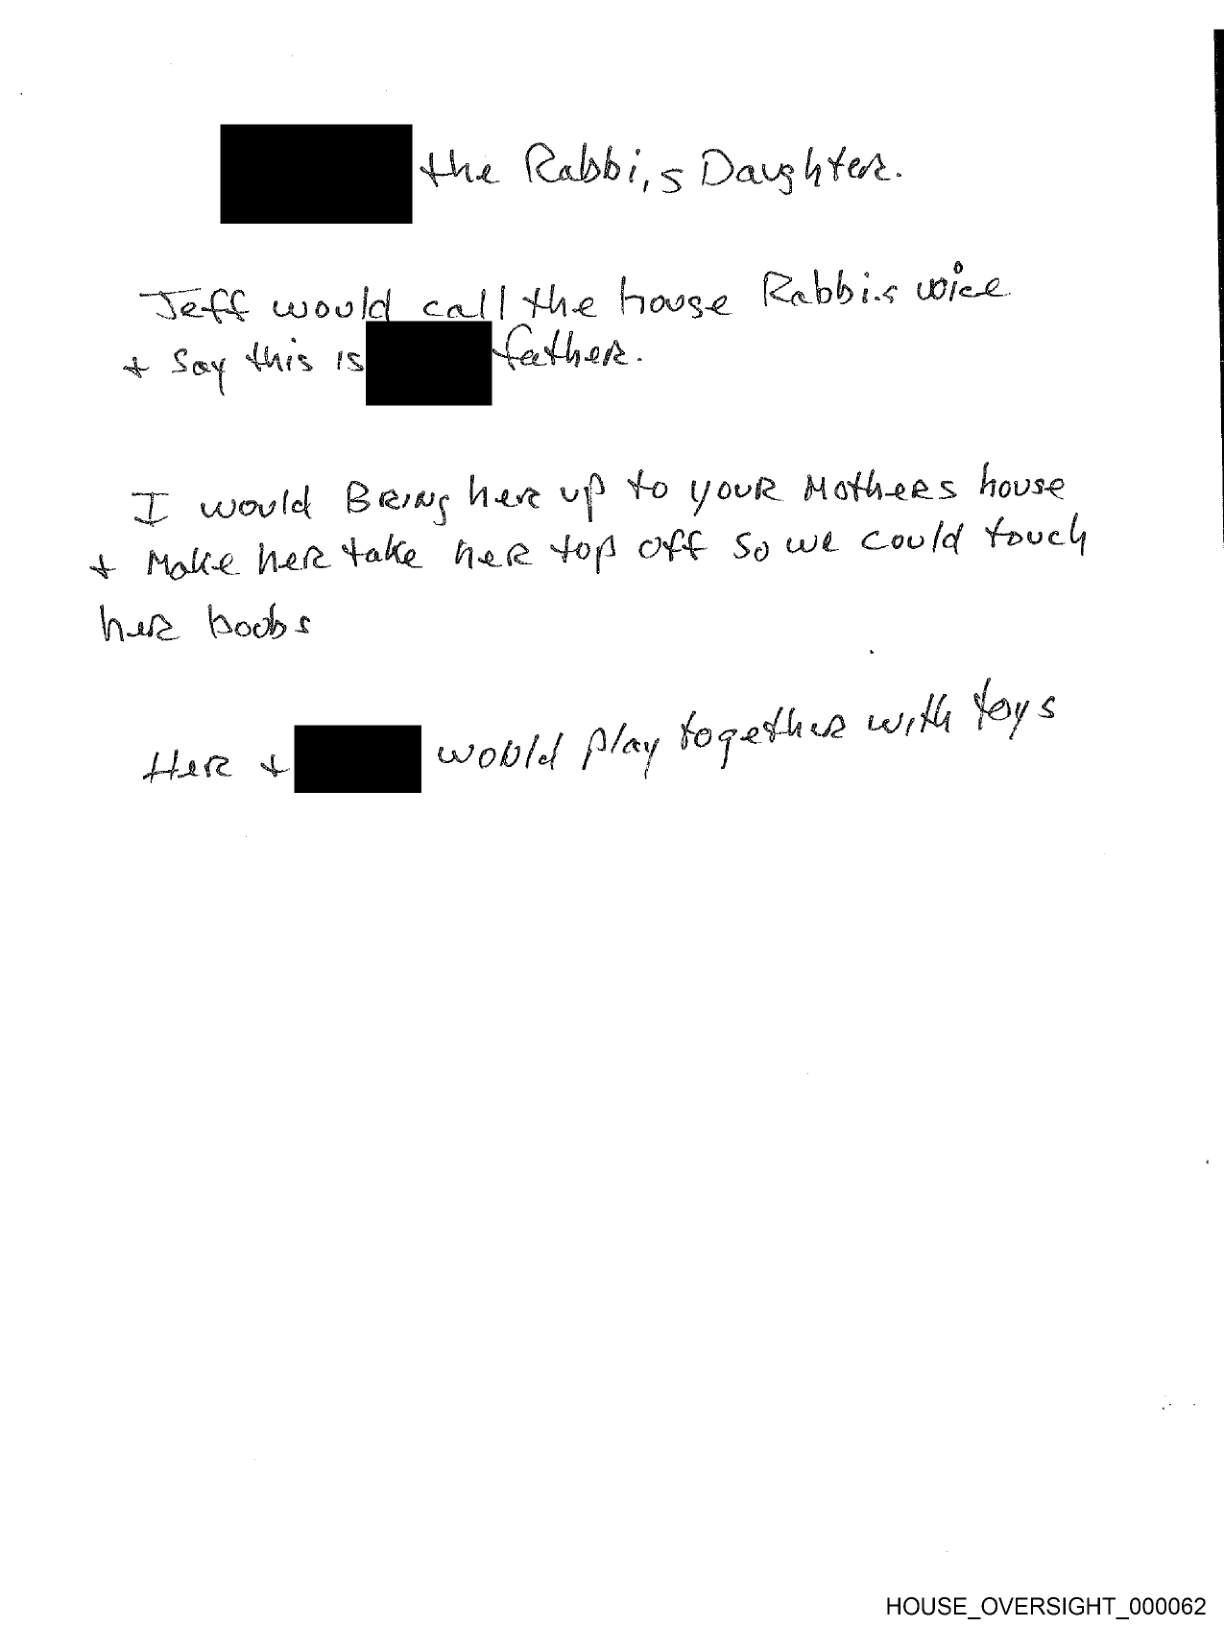 the Rabbi,s Daughter.
Jeff would call the house Rabbi.s voice
+ Say this is father.
I would Bring her up to your Mothers house
+ Make her take her top off so we could touch
her boobs
Her + would play together with toys
HOUSE_OVERSIGHT_000062